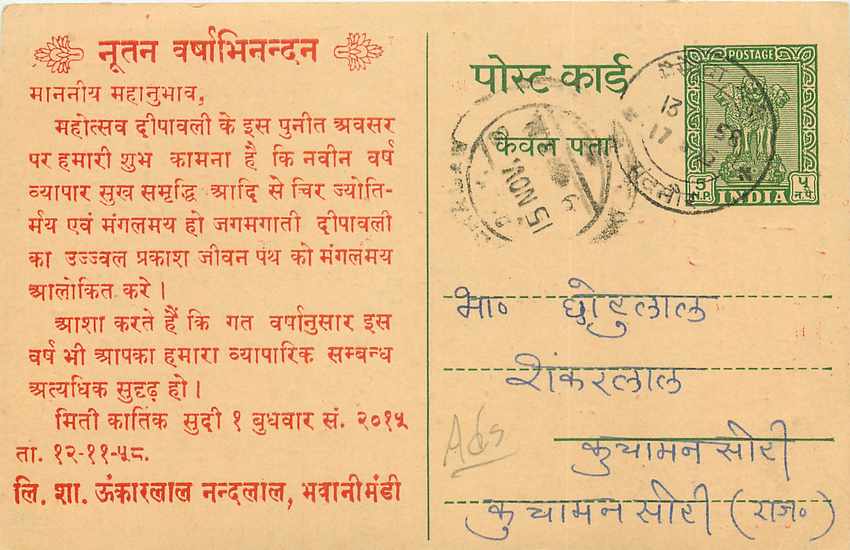 नूतन वर्षाभिनन्दन
माननीय महानुभाव,
महोत्सव दीपावली के इस पुनीत अवसर
पर हमारी शुभ कामना है कि नवीन वर्ष
व्यापार सुख समृद्धि आदि से चिर ज्योति-
र्मय एवं मंगलमय हो जगमगाती दीपावली
का उज्ज्वल प्रकाश जीवन पंथ को मंगलमय
आलोकित करे।
आशा करते हैं कि गत वर्षानुसार इस
वर्ष भी आपका हमारा व्यापारिक सम्बन्ध
अत्यधिक सुदृढ़ हो।
मिती कार्तिक सुदी १ बुधवार सं. २०१५
ता. १२-११-५८.
लि. शा. ऊंकारलाल नन्दलाल, भवानीमंडी
पोस्ट कार्ड
केवल पता
POSTAGE
5 N.P.
INDIA
५ न.पै.
15 NOV.
भा० छोटुलाल
शंकरलाल
कुचामन सीटी
कुचामन सीटी (राज०)
Ads